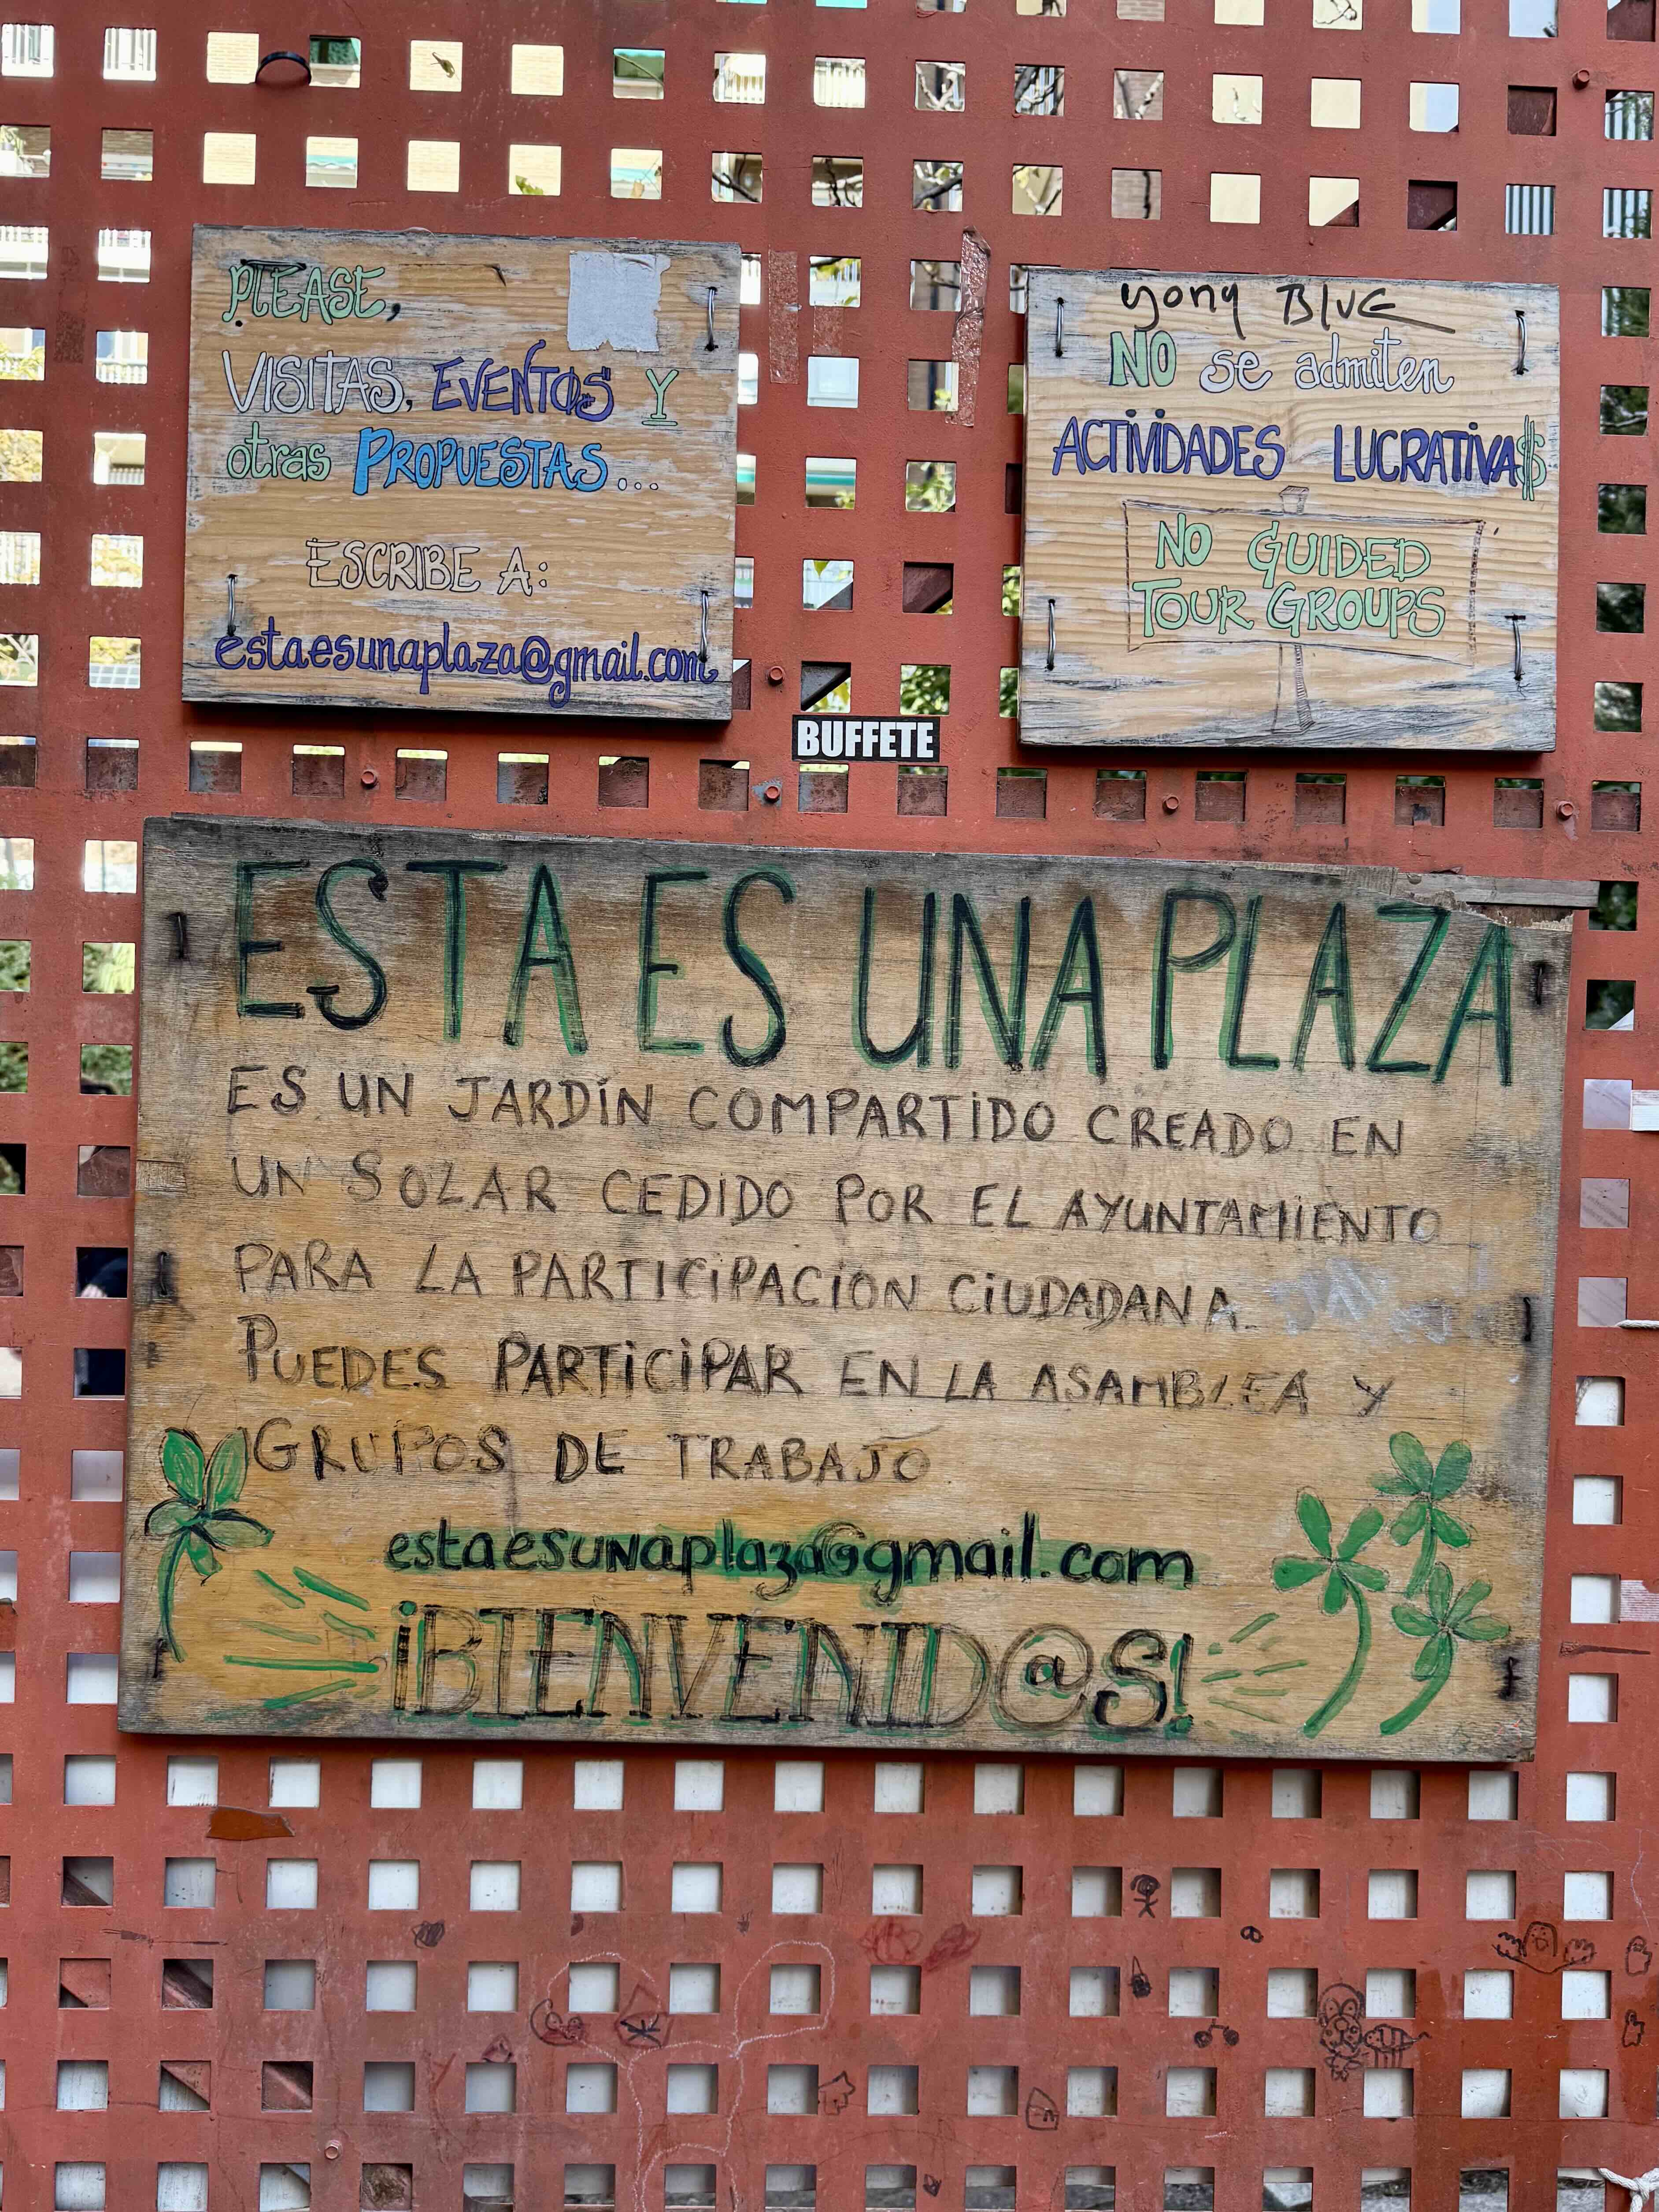 PLEASE,
VISITAS, EVENTOS Y
otras PROPUESTAS...
ESCRIBE A:
estaesunaplaza@gmail.com
yony BLUE
NO se admiten
ACTIVIDADES LUCRATIVA$
NO GUIDED
TOUR GROUPS
BUFFETE
ESTA ES UNA PLAZA
ES UN JARDÍN COMPARTIDO CREADO EN
UN SOLAR CEDIDO POR EL AYUNTAMIENTO
PARA LA PARTICIPACIÓN CIUDADANA.
PUEDES PARTICIPAR EN LA ASAMBLEA Y
GRUPOS DE TRABAJO
estaesunaplaza@gmail.com
¡BIENVENID@S!